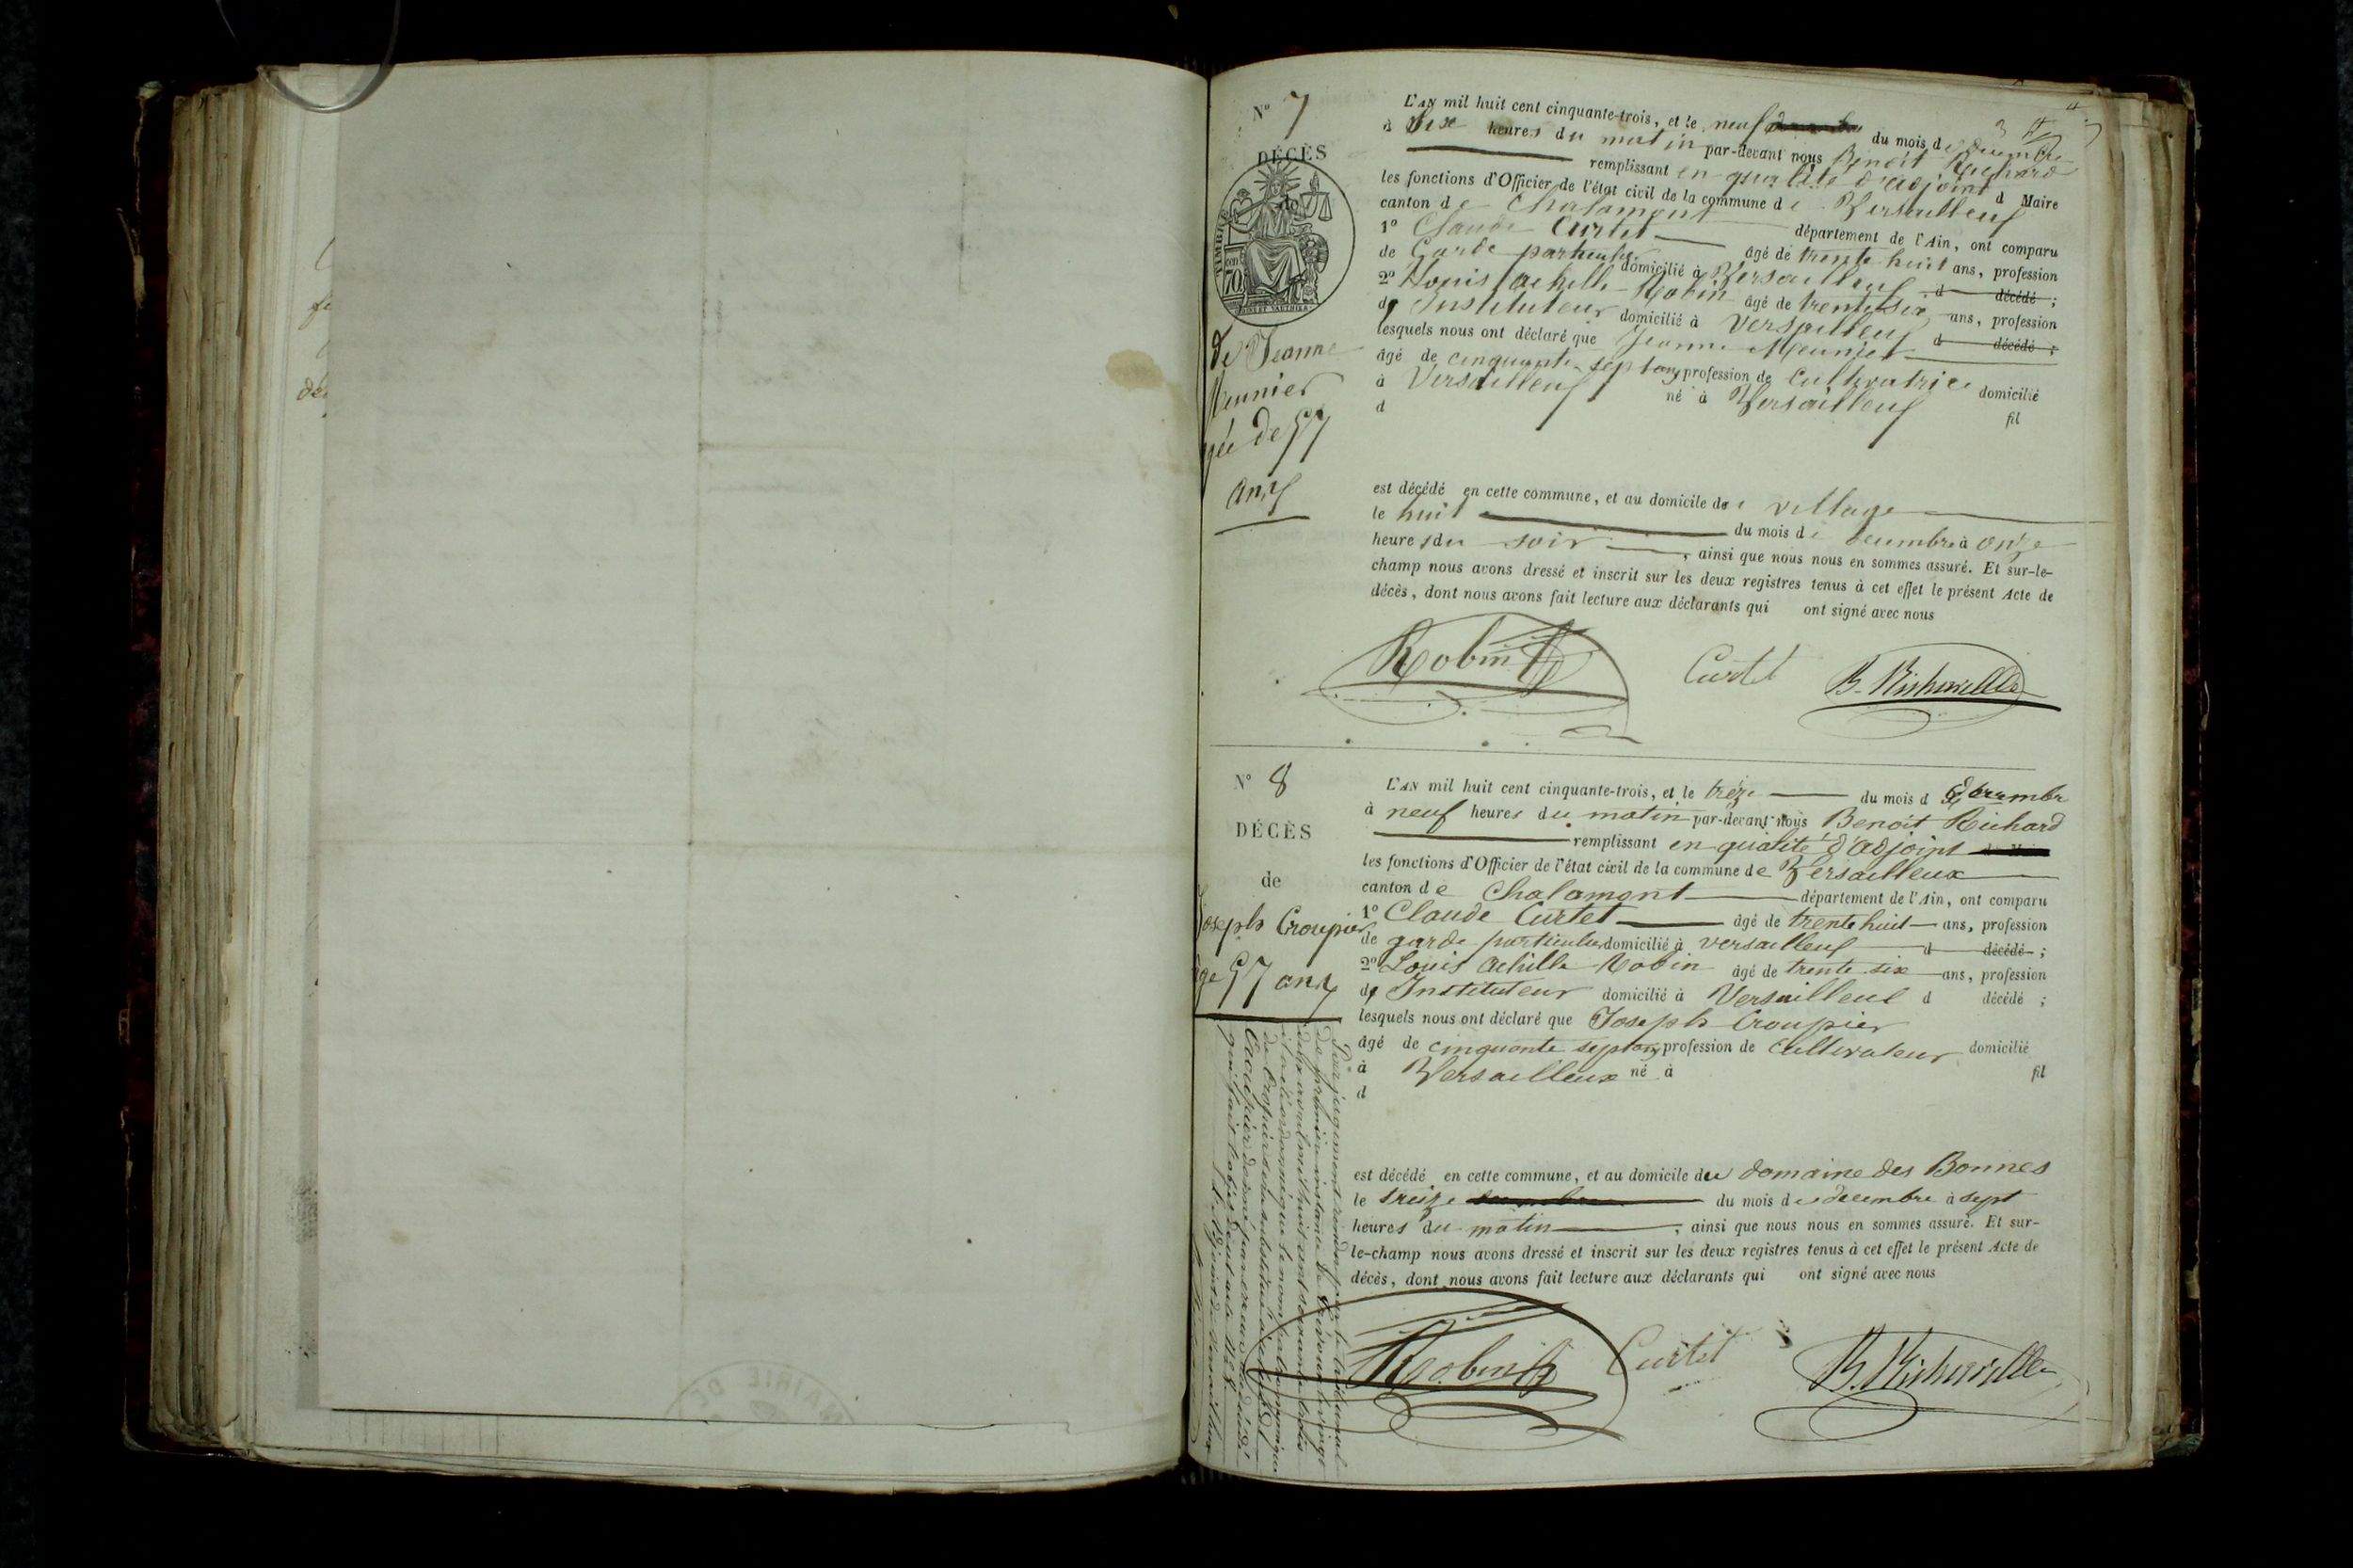 N° 7
DÉCÈS
de
TIMBRE
70
de Jeanne
Meunier
gée de 57
ans
L'AN mil huit cent cinquante-trois, et le neuf du mois de decembre
à dix heures du matin par-devant nous Benoit Richard
remplissant en qualité d'adjoint d Maire
les fonctions d'Officier de l'état civil de la commune de Versailleux
canton de Chalamont département de l'Ain, ont comparu
1° Claude Curtet âgé de trente huit ans, profession
de Garde particulier domicilié à Versailleux d décédé ;
2° Louis Achille Robin âgé de trente six ans, profession
d' Instituteur domicilié à Versailleux d décédé ;
lesquels nous ont déclaré que Jeanne Meunier
âgé de cinquante sept ans profession de cultivatrice domicilié
à Versailleux né à Versailleux fil
d
est décédé en cette commune, et au domicile du village
le huit du mois de decembre à onze
heures du soir, ainsi que nous nous en sommes assuré. Et sur-le-
champ nous avons dressé et inscrit sur les deux registres tenus à cet effet le présent Acte de
décès, dont nous avons fait lecture aux déclarants qui ont signé avec nous
Robin Curtet B. Richard
N° 8
DÉCÈS
de
Joseph Croupier
âgé 57 ans
L'AN mil huit cent cinquante-trois, et le treize du mois d decembre
à neuf heures du matin par-devant nous Benoit Richard
remplissant en qualité d'adjoint
les fonctions d'Officier de l'état civil de la commune de Versailleux
canton de Chalamont département de l'Ain, ont comparu
1° Claude Curtet âgé de trente huit ans, profession
de garde particulier domicilié à Versailleux d décédé ;
2° Louis Achille Robin âgé de trente six ans, profession
d' Instituteur domicilié à Versailleux d décédé ;
lesquels nous ont déclaré que Joseph Croupier
âgé de cinquante sept ans profession de cultivateur domicilié
à Versailleux né à fil
d
est décédé en cette commune, et au domicile du domaine des Bonnes
le treize du mois de decembre à sept
heures du matin, ainsi que nous nous en sommes assuré. Et sur-
le-champ nous avons dressé et inscrit sur les deux registres tenus à cet effet le présent Acte de
décès, dont nous avons fait lecture aux déclarants qui ont signé avec nous
Robin Curtet B. Richard
Par jugement rendu par le tribunal
de première instance de Trévoux le vingt
mil huit cent soixante
il a été ordonné que le nom patronymique
de Cropier sera substitué à celui de
Croupier donné par erreur au décédé
qui fait l'objet dudit acte N° 8
MAIRIE DE